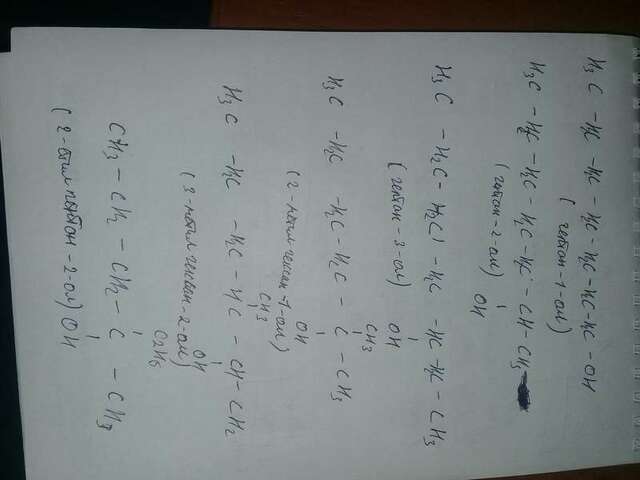 H₃C - H₂C - H₂C - H₂C - H₂C - H₂C - H₂C - OH
(гептан-1-ол)
H₃C - H₂C - H₂C - H₂C - H₂C - CH - CH₃
(гептан-2-ол) OH
H₃C - H₂C - H₂C - H₂C - HC - H₂C - CH₃
(гептан-3-ол) OH
CH₃
H₃C - H₂C - H₂C - H₂C - C - CH₃
(2-метилгексан-1-ол) OH
CH₃
H₃C - H₂C - H₂C - HC - CH - CH₂
(3-метилгексан-2-ол) OH
O₂H₅
CH₃ - CH₂ - CH₂ - C - CH₃
(2-этилпентан-2-ол) OH